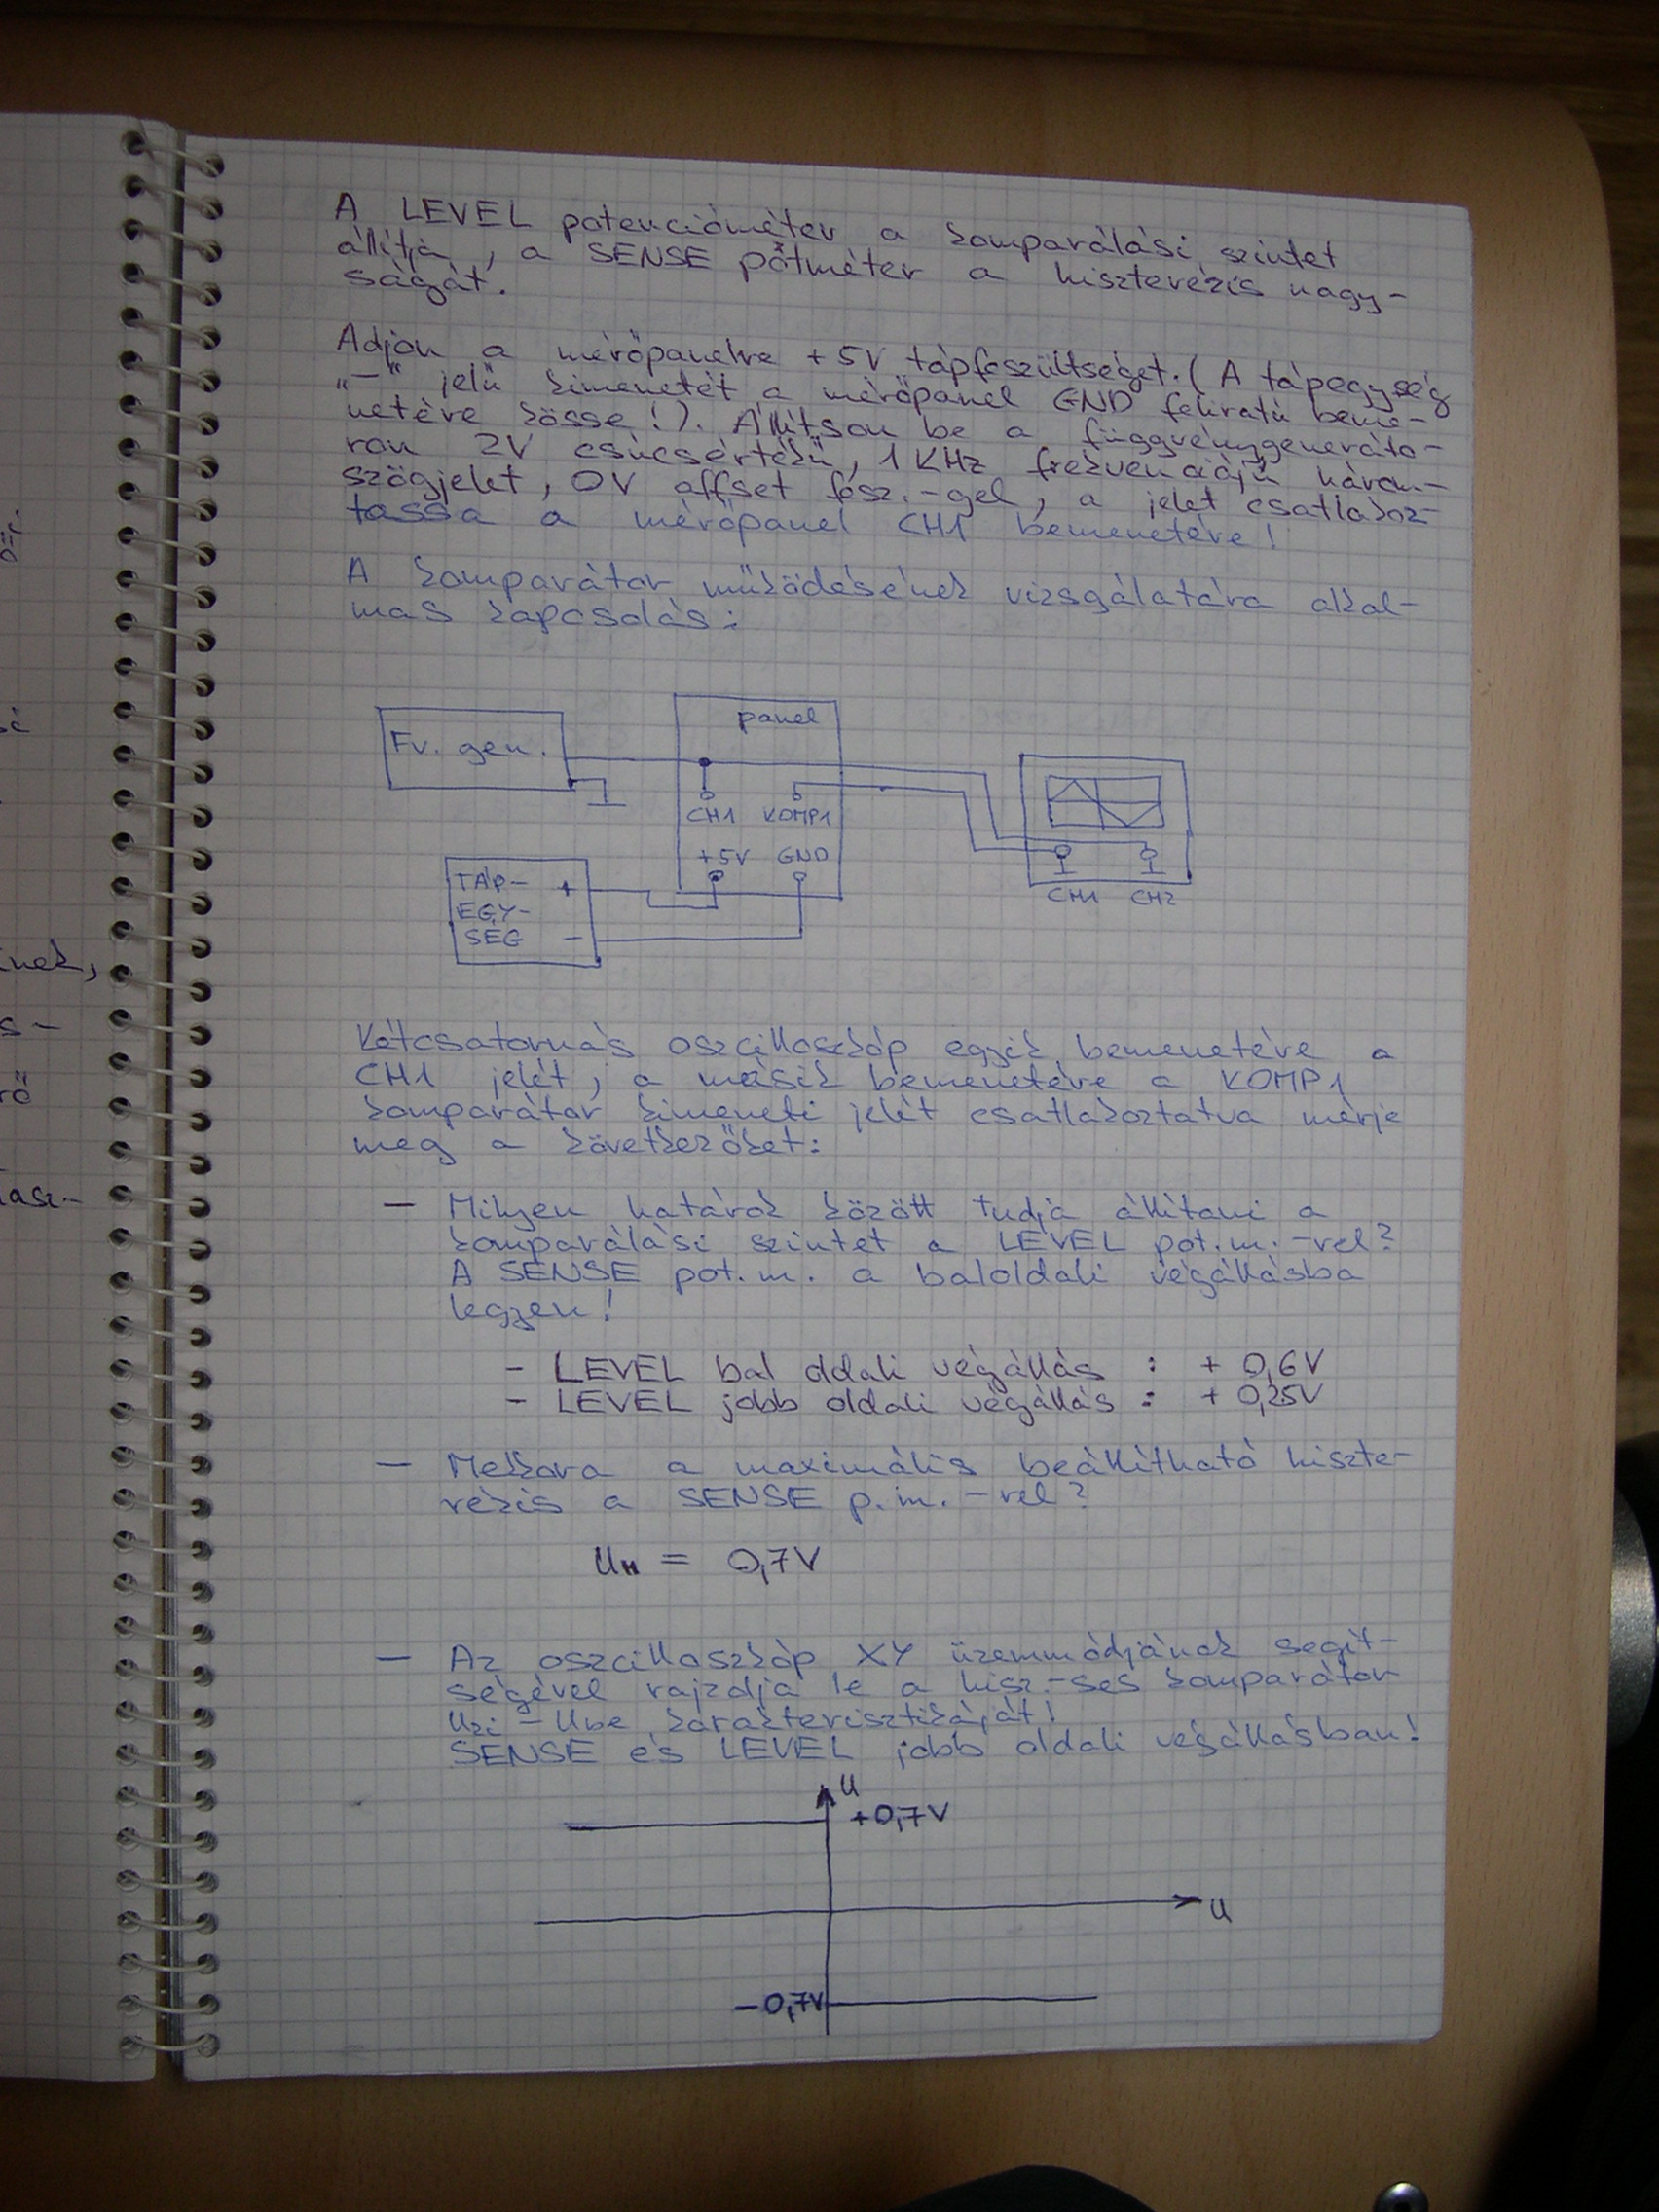 A LEVEL potenciométer a komparálási szintet
állítja, a SENSE potméter a hiszterézis nagy-
ságát.
Adjon a mérőpanelre +5V tápfeszültséget. (A tápegység
„-" jelű kimenetét a mérőpanel GND feliratú beme-
netére kösse!). Állítson be a függvénygeneráto-
ron 2V csúcsértékű, 1 KHz frekvenciájú három-
szögjelet, 0V offset fesz.-gel, a jelet csatlakoz-
tassa a mérőpanel CH1 bemenetére!
A komparátor működésének vizsgálatára alkal-
mas kapcsolás:
panel
Fv. gen.
CH1 KOMP1
+5V GND
TÁP- +
EGY-
SÉG -
CH1 CH2
Kétcsatornás oszcilloszkóp egyik bemenetére a
CH1 jelét, a másik bemenetére a KOMP1
komparátor kimeneti jelét csatlakoztatva mérje
meg a következőket:
- Milyen határok között tudja állítani a
komparálási szintet a LEVEL pot.m.-rel?
A SENSE pot.m. a baloldali végállásba
legyen!
- LEVEL bal oldali végállás : + 0,6V
- LEVEL jobb oldali végállás : + 0,25V
- Mekkora a maximális beállítható hiszte-
rézis a SENSE p.m.-rel?
UH = 0,7V
- Az oszcilloszkóp XY üzemmódjának segít-
ségével rajzolja le a hisz.-ses komparátor
Uki - Ube karakterisztikáját!
SENSE és LEVEL jobb oldali végállásban!
U
+0,7V
U
-0,7V